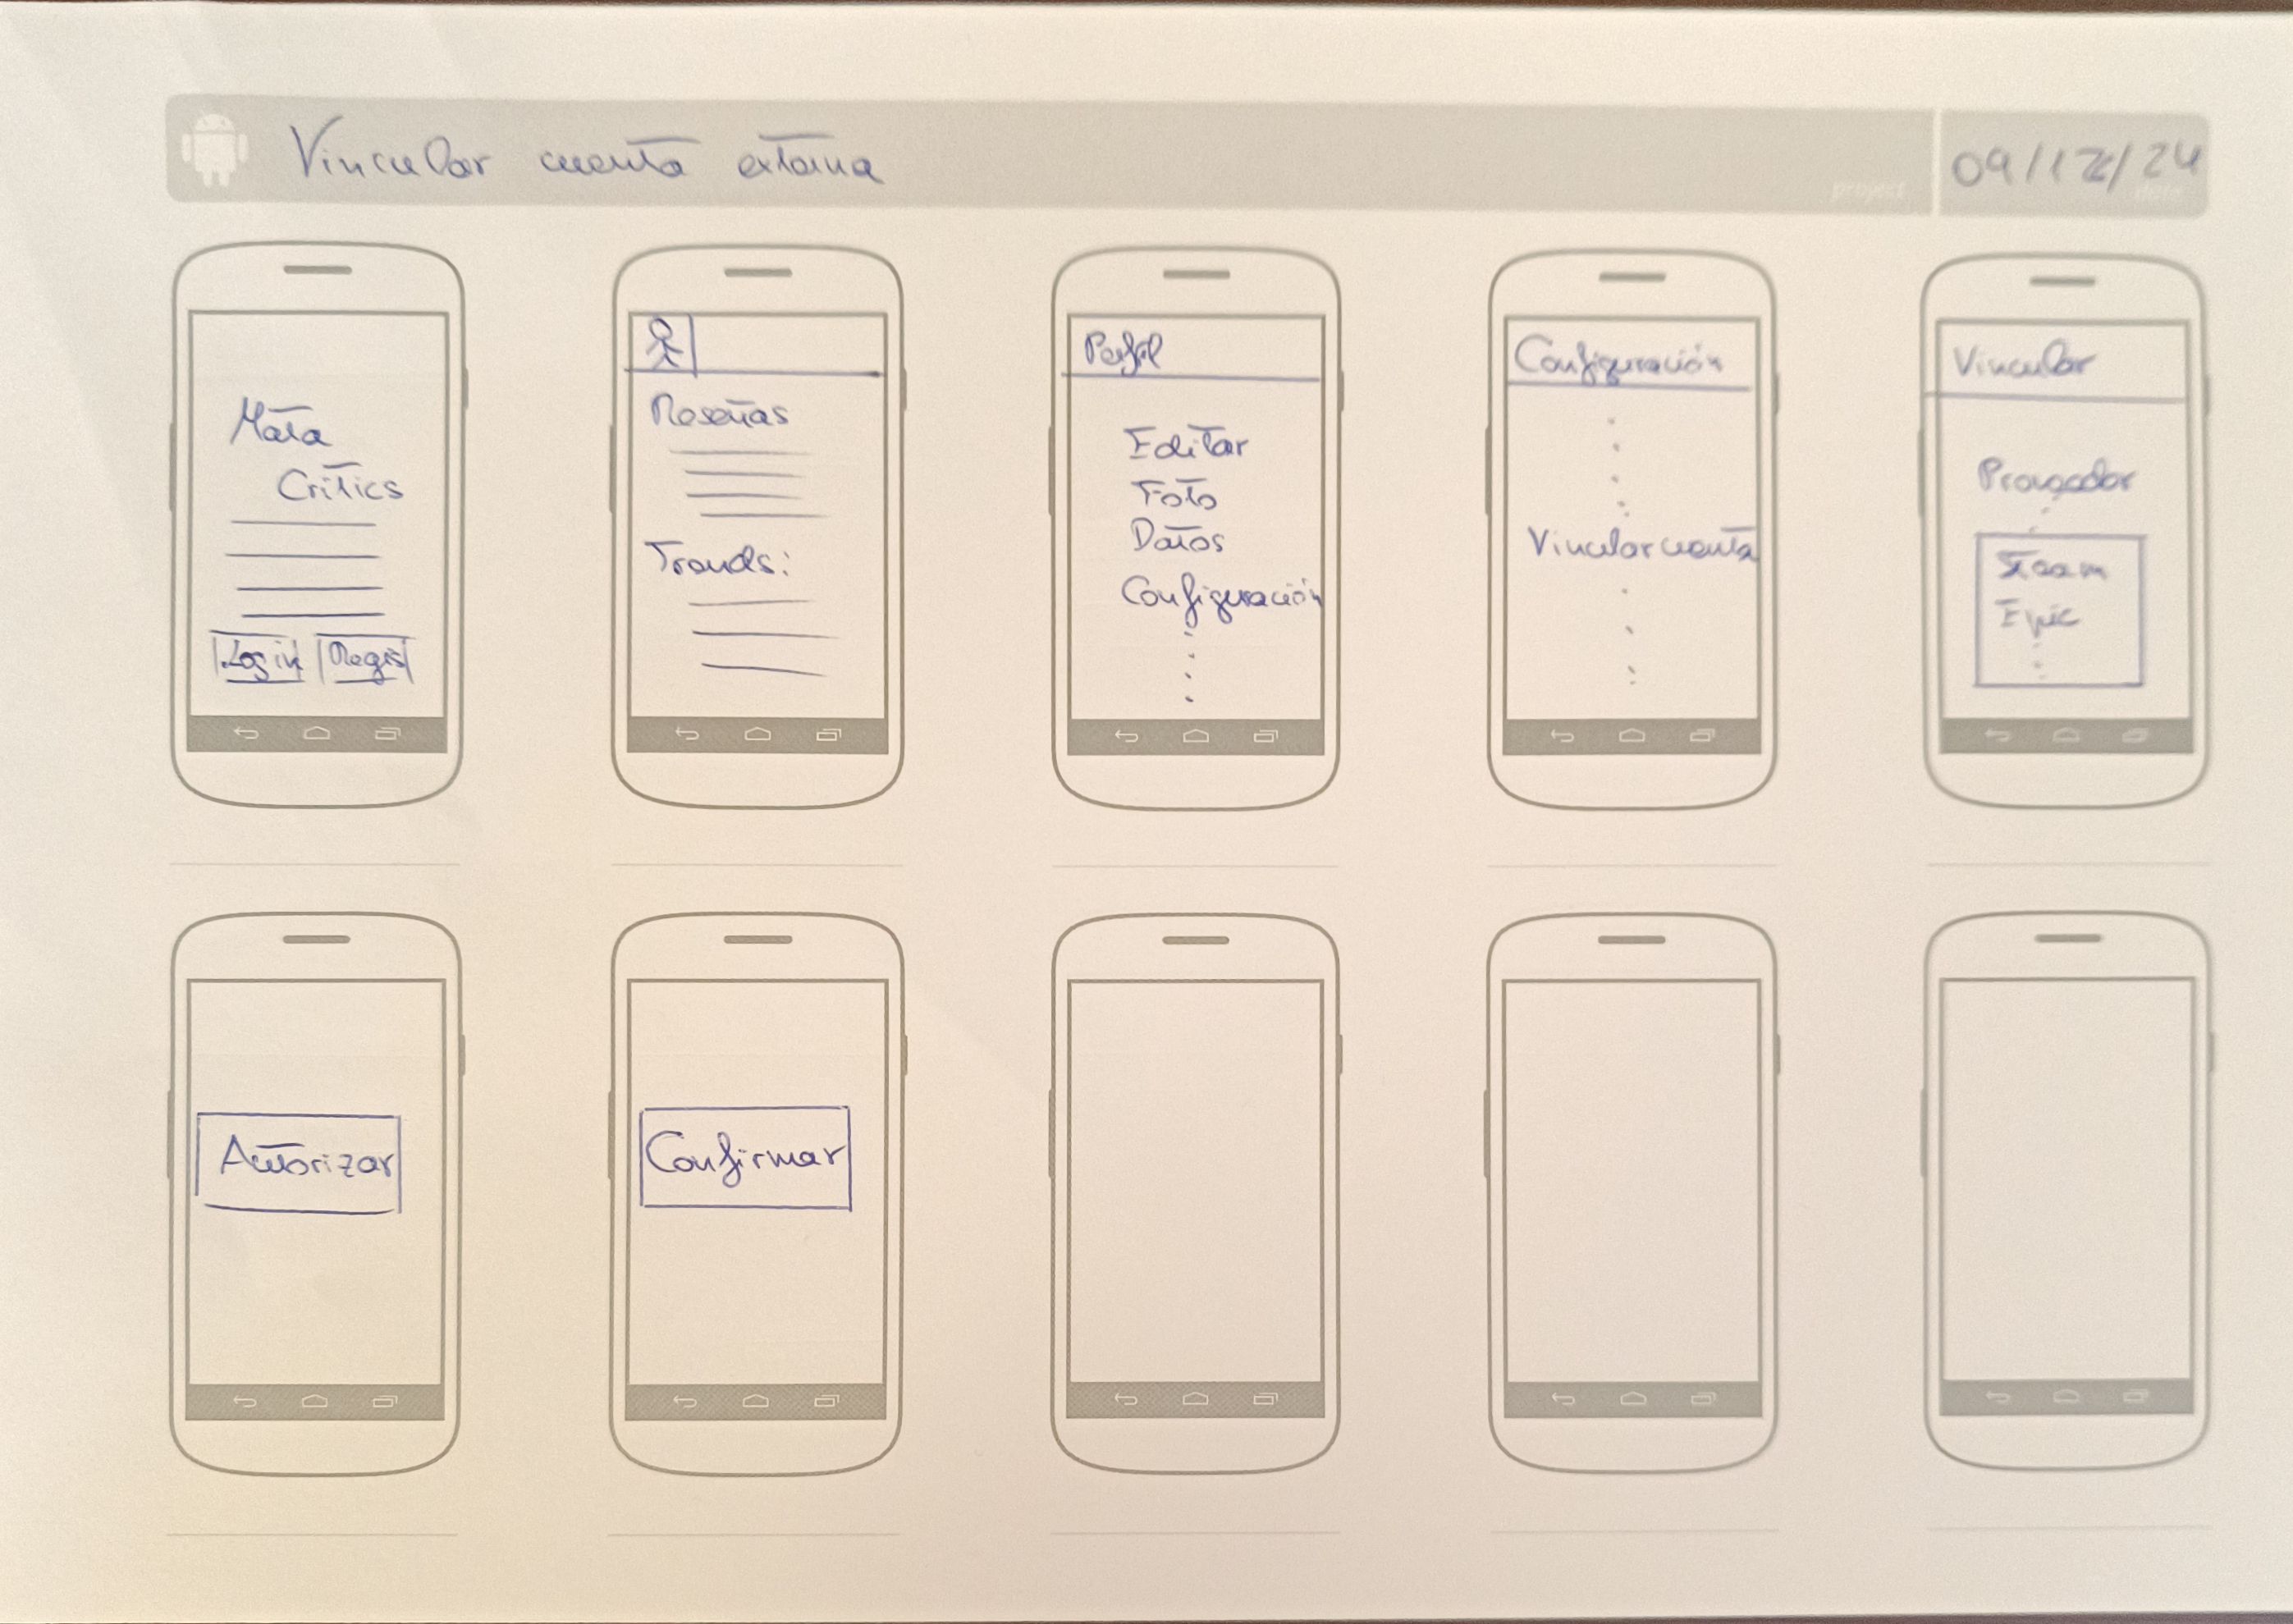 Vincular cuenta externa
project
09/12/24
date
Mata
Critics
Login Regis
Reseñas
Trends:
Perfil
Editar
Foto
Datos
Configuración
Configuración
Vincular cuenta
Vincular
Proveedor
Steam
Epic
Autorizar
Confirmar